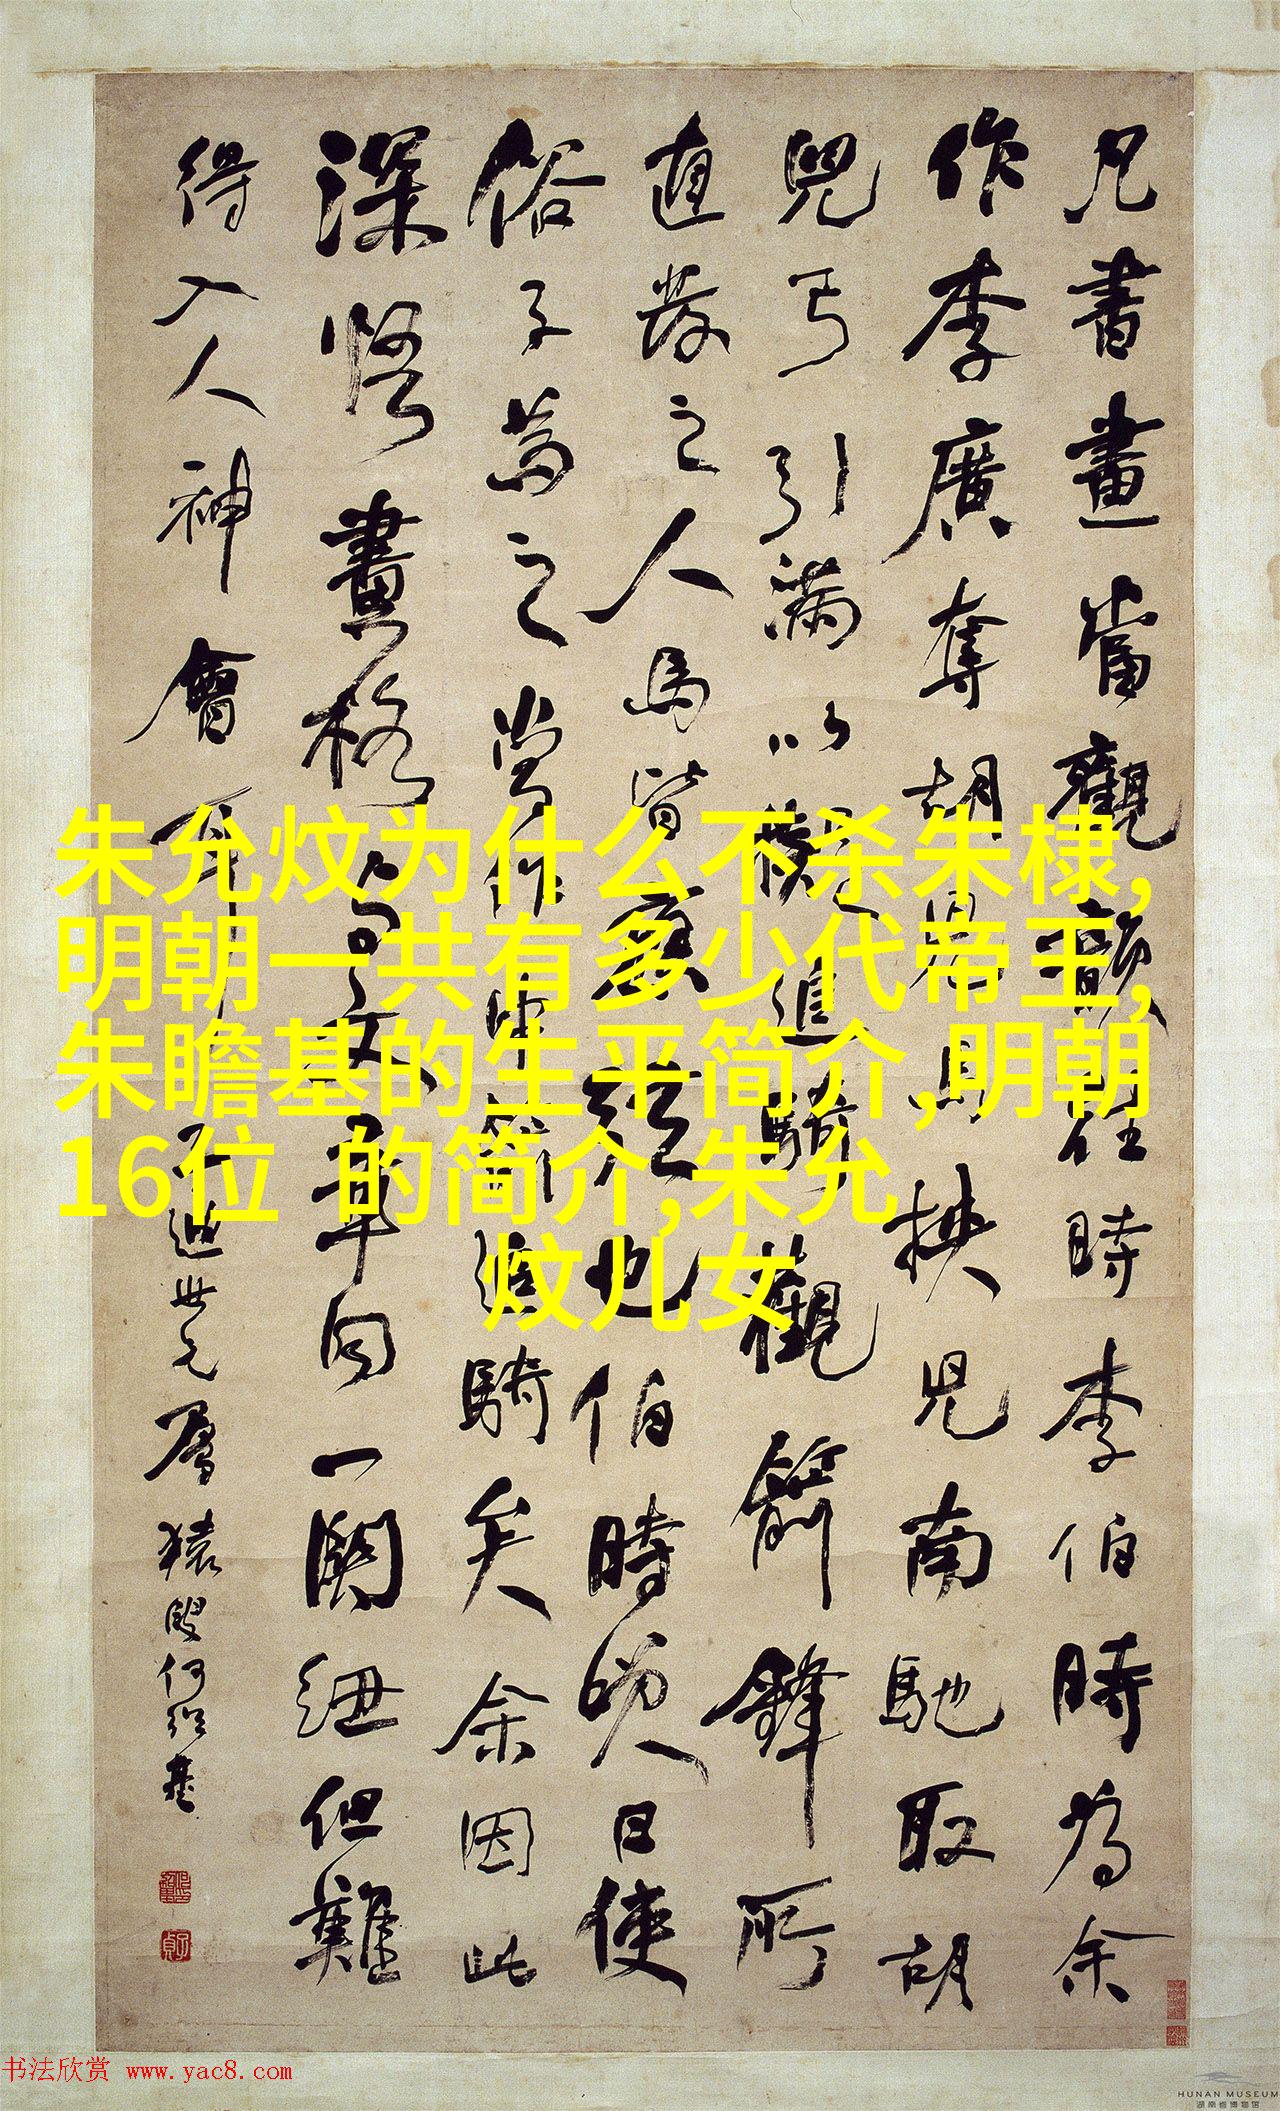 凡書畫當觀韻往時李伯時為余
作李廣奪胡兒馬挾兒南馳取胡
兒弓引滿以擬追騎觀箭鋒所
直發之人馬皆應弦也伯時笑曰使
俗子為之當作中箭追騎矣余因此
深悟畫格與文章同一關紐但難
得入人神會耳
迪世元層 猿叟何紹基
朱允炆为什么不杀朱棣,
明朝一共有多少代帝王,
朱瞻基的生平简介,明朝
16位 的简介,朱允
炆儿女
书法欣赏 www.yac8.com
HUNAN MUSEUM
湖南省博物馆